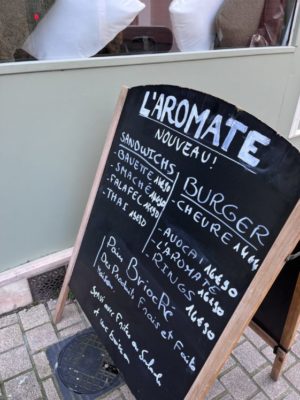 L'AROMATE
NOUVEAU!
SANDWICHS
- BAVETTE
- SMACHÉ
- FALAFEL
- THAI
BURGER
- CHEVRE
- AVOCAT 16€90
- L'AROMATE 16€90
- RINGS 16€90
Pain Brioché
Des Produits Frais et Faits
maison
Servi avec Frites ou Salade
et une